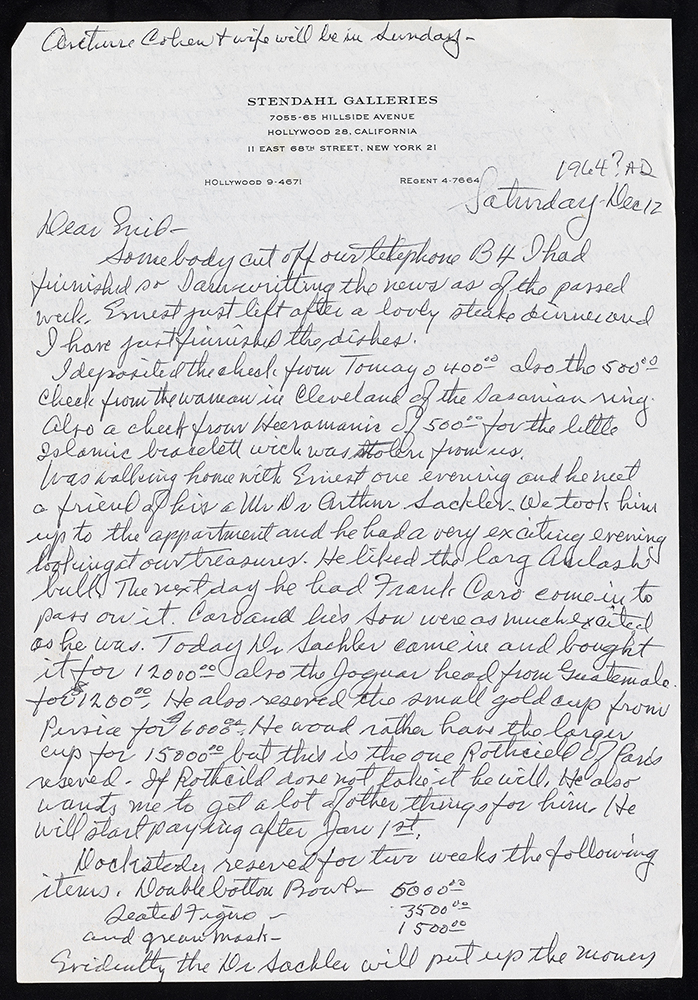 Arcture Cohen + wife will be in Sunday-
STENDAHL GALLERIES
7055-65 HILLSIDE AVENUE
HOLLYWOOD 28, CALIFORNIA
11 EAST 68TH STREET, NEW YORK 21
HOLLYWOOD 9-4671 REGENT 4-7664
1964? AD
Saturday-Dec 12
Dear Enid-
Somebody cut off our telephone B4 I had
furnished so I am writting the news as of the passed
week. Ernest just left after a lovly steake dinner and
I have just furnished the dishes.
I deposited the check from Tomayo 400.00 also the 500.00
check from the woman in Cleveland of the Sasanian ring.
Also a check from Heeramanic of 500.00 for the little
Islamic bracelett wich was stolen from us.
Was walking home with Ernest one evening and he met
a friend of his a Mr Dr Arthur Sackler. We took him
up to the appartment and he had a very exciting evening
looking at our treasures. He liked the larg Amlash
bull. The next day he had Frank Caro come in to
pass on it. Caro and his son were as much excited
as he was. Today Dr Sackler came in and bought
it for 12000.00 also the Joguar head from Guatemala.
for $1200.00. He also reserved the small gold cup from
Persia for $6000.00. He woud rather have the larger
cup for 15000.00 but this is the one Rothcield of Paris
reserved. If Rothcild dose not take it he will. He also
wants me to get a lot of other things for him. He
will start paying after Jan 1st.
Dockstady reserved for two weeks the following
items. Double botton Bowl- 6000.00
Seated Figure - 3500.00
and green mask- 1500.00
Evidently the Dr Sackler will put up the money